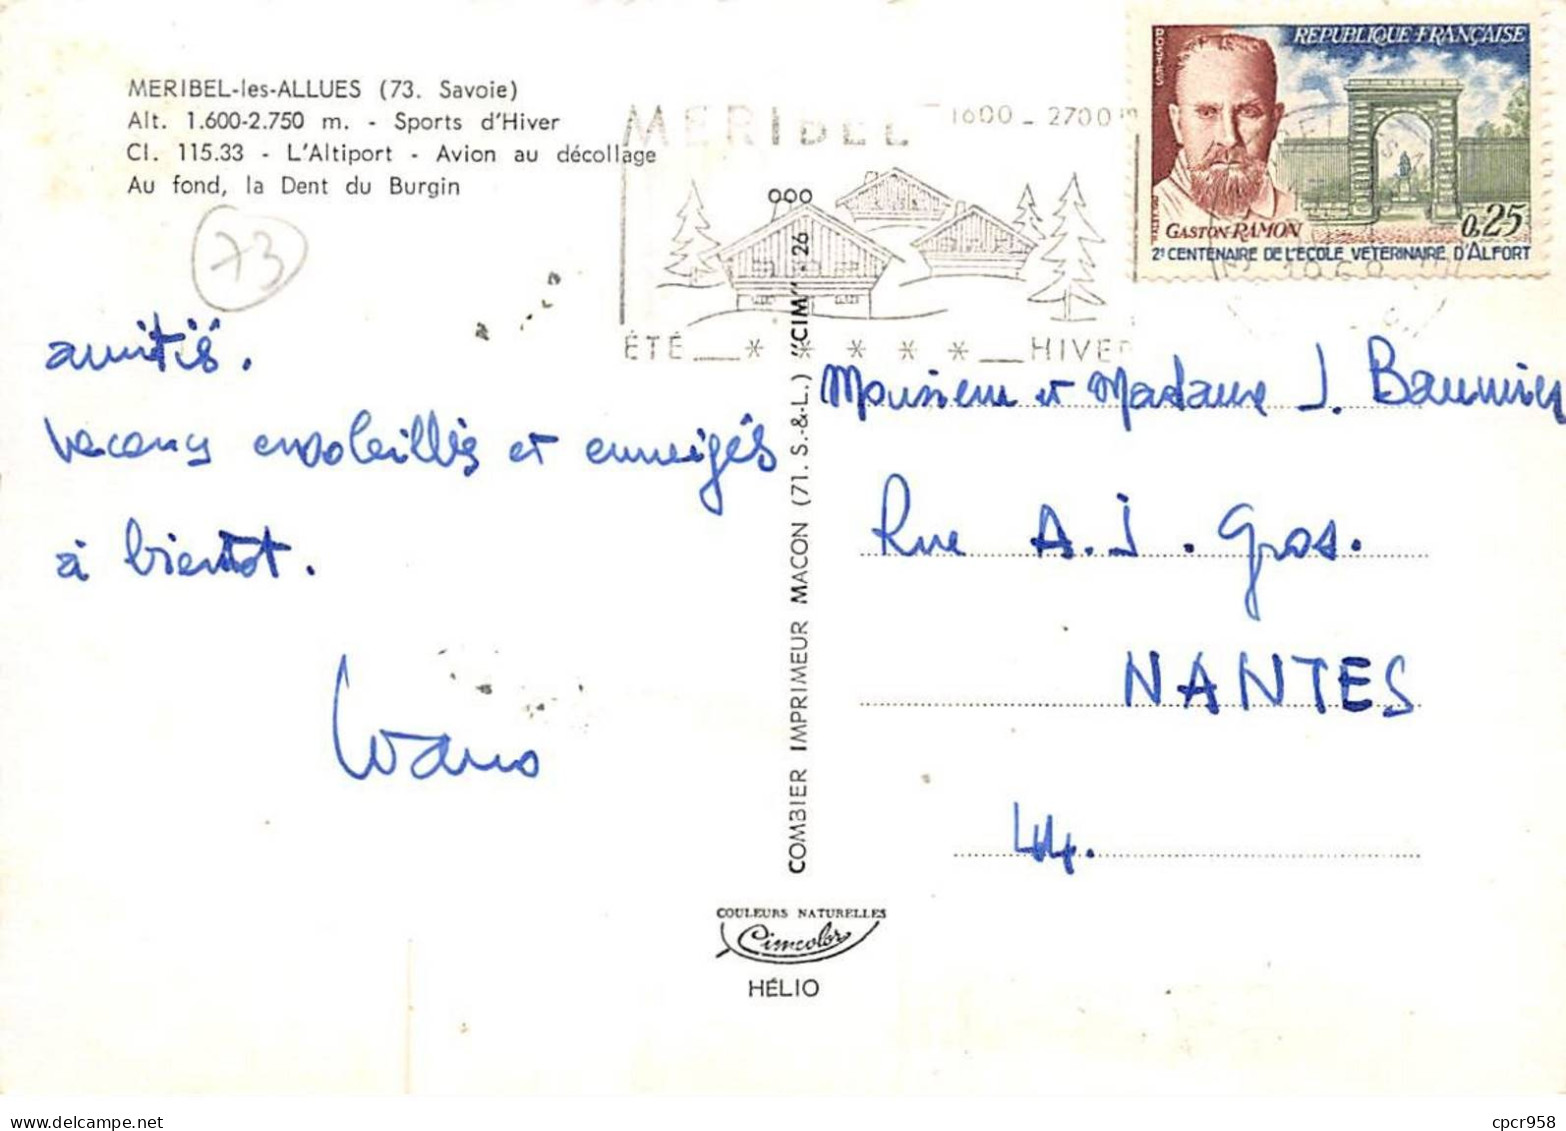 MERIBEL-les-ALLUES (73. Savoie)
Alt. 1.600-2.750 m. - Sports d'Hiver
Cl. 115.33 - L'Altiport - Avion au décollage
Au fond, la Dent du Burgin
73
MERIBEL 1600 - 2700 m
ÉTÉ __ * * * * * __ HIVER
REPUBLIQUE FRANÇAISE
GASTON-RAMON
0,25
2e CENTENAIRE DE L'ECOLE VETERINAIRE D'ALFORT
1968
amitiés.
vacances ensoleillés et enneigés
à bientot.
COMBIER IMPRIMEUR MACON (71. S.-&-L.) "CIM" - 26
Monsieur et Madame J. Baumier
Rue A. J. Gros.
NANTES
44.
COULEURS NATURELLES
Cimcolor
HÉLIO
cpcr958